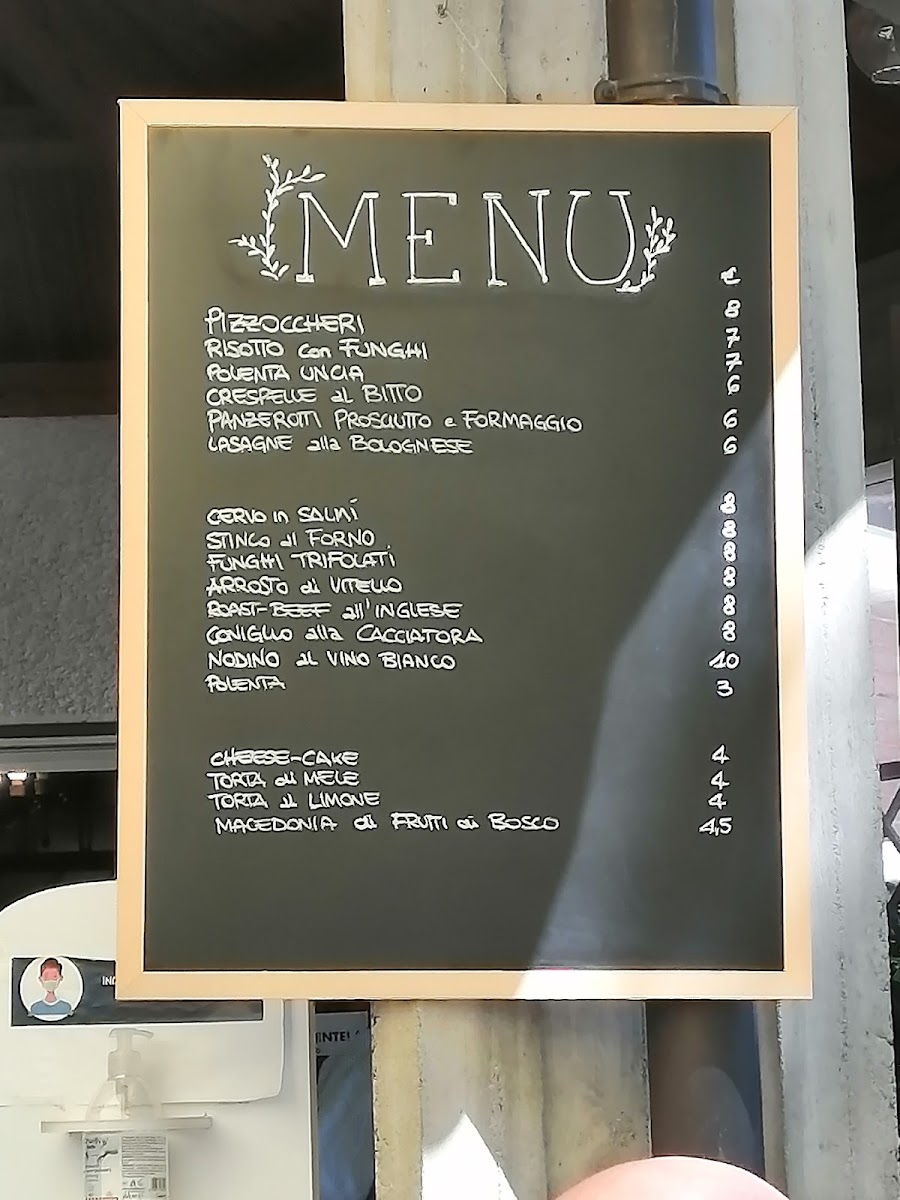 MENU
€
PIZZOCCHERI 8
RISOTTO con FUNGHI 7
POLENTA UNCIA 7
CRESPELLE al BITTO 6
PANZEROTTI PROSCIUTTO e FORMAGGIO 6
LASAGNE alla BOLOGNESE 6
CERVO in SALMÍ 8
STINCO al FORNO 8
FUNGHI TRIFOLATI 8
ARROSTO di VITELLO 8
ROAST-BEEF all'INGLESE 8
CONIGLIO alla CACCIATORA 8
NODINO al VINO BIANCO 10
POLENTA 3
CHEESE-CAKE 4
TORTA di MELE 4
TORTA al LIMONE 4
MACEDONIA di FRUTTI di BOSCO 4,5